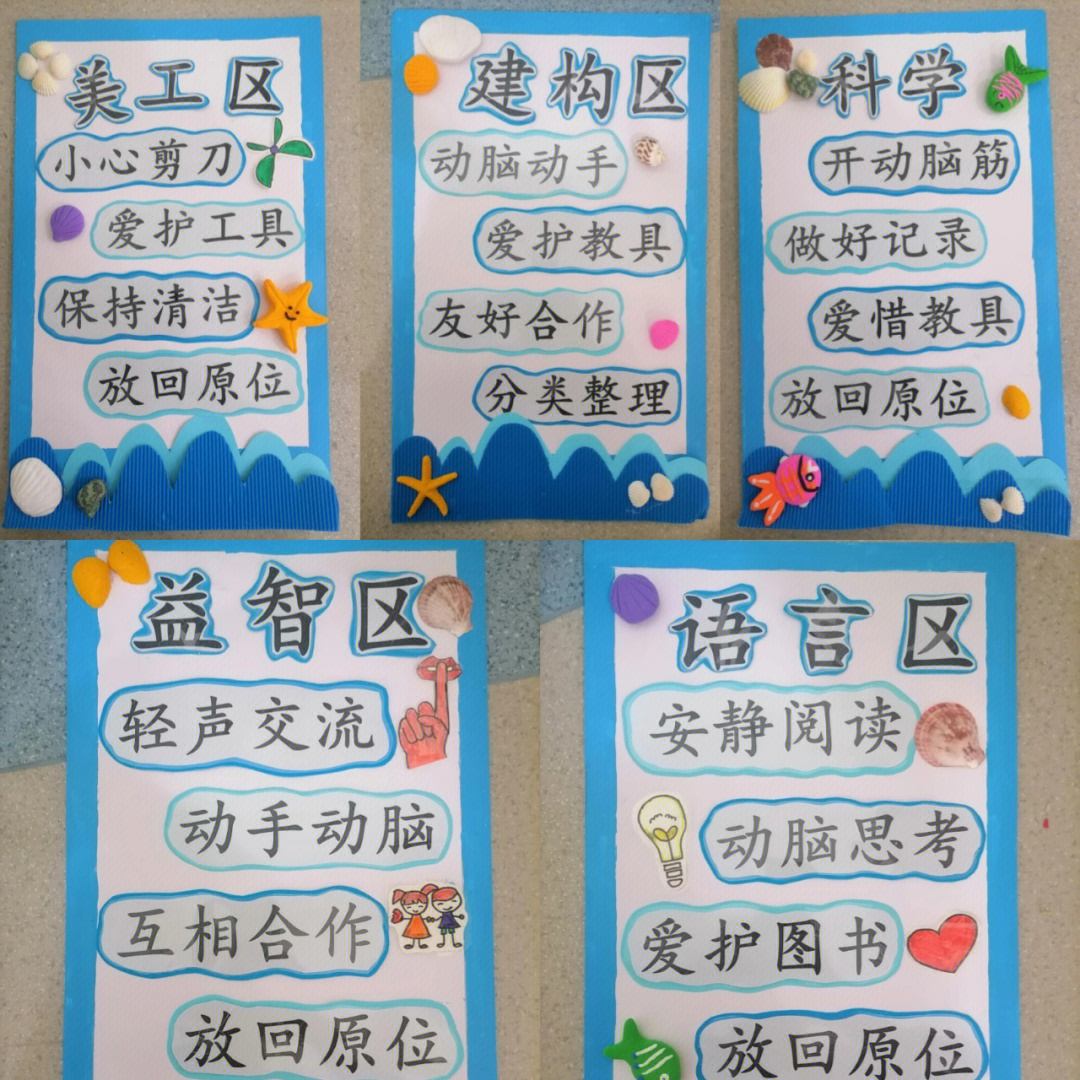 美工区
小心剪刀
爱护工具
保持清洁
放回原位
建构区
动脑动手
爱护教具
友好合作
分类整理
科学
开动脑筋
做好记录
爱惜教具
放回原位
益智区
轻声交流
动手动脑
互相合作
放回原位
语言区
安静阅读
动脑思考
爱护图书
放回原位